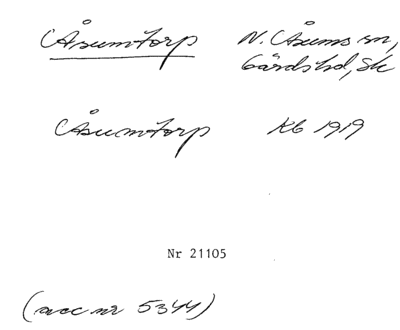 Åsumtorp N. Åsums sn,
Gärds hd, Sk
Åsumtorp Kb 1919
Nr 21105
(acc nr 5344)